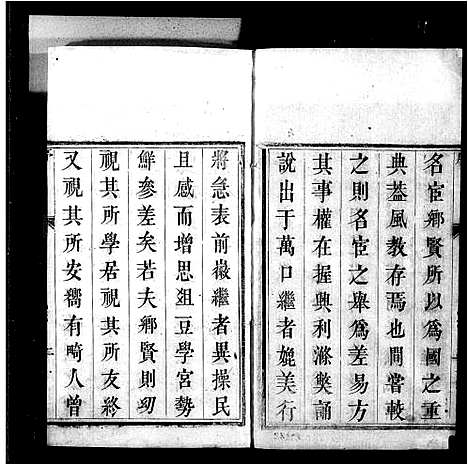 名宦鄉賢所以爲國之重
典葢風敎存焉也間嘗較
之則名宦之舉爲差易方
其事權在握興利滌獘誦
說出于萬口繼者媲美行
將急表前徽繼者異操民
且感而增思俎豆學宮勢
鮮參差矣若夫鄉賢則幼
視其所學居視其所友終
又視其所安嚮有畸人曾